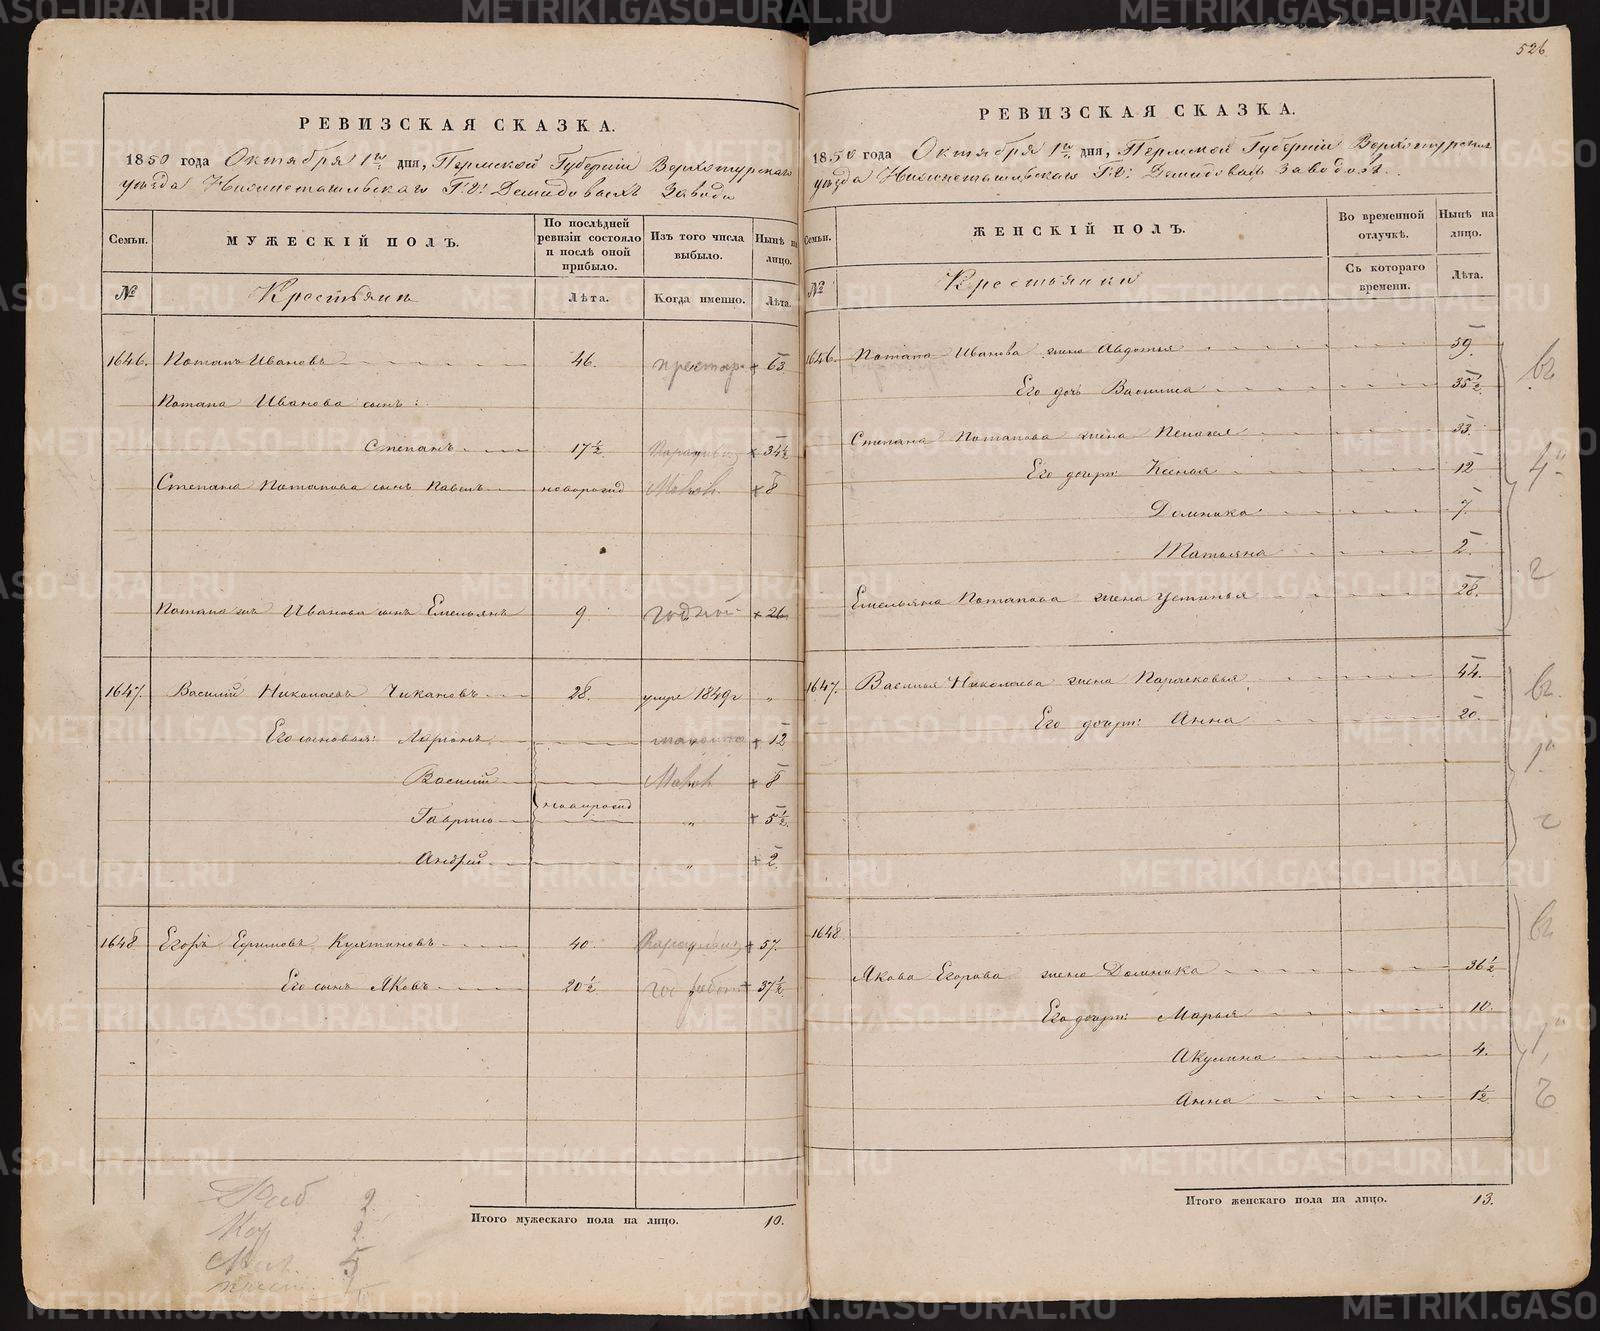 РЕВИЗСКАЯ СКАЗКА.
1850 года Октября 1го дня, Пермской Губернiи Верхотурскаго
уѣзда Нижнетагильскаго Г.г. Демидовыхъ Завода
Семьи.
МУЖЕСКIЙ ПОЛЪ.
По послѣдней ревизiи состояло и послѣ оной прибыло.
Изъ того числа выбыло.
Нынѣ на лицо.
№
Крестьяне
Лѣта.
Когда именно.
Лѣта.
1646. Потапъ Ивановъ 46. престар. + 63
Потапа Иванова сынъ:
Степанъ 17½ + 34½
Степана Потапова сынъ Павелъ новорожд + 8
Потапа Иванова сынъ Емельянъ 9 годной + 26
1647. Василiй Николаевъ Чикановъ 28. умре 1849 г "
Его сыновья: Ларiонъ + 12
Василiй + 8
новорожд
Гаврило " + 5½
Андрей " + 2
1648 Егоръ Ефимовъ Кухтиновъ 40. + 57.
Его сынъ Яковъ 20½ + 37½
Итого мужескаго пола на лицо. 10.
Раб 2
Кар 2
Мал. 5
прест 1
526
РЕВИЗСКАЯ СКАЗКА.
1850 года Октября 1го дня, Пермской Губернiи Верхотурскаго
уѣзда Нижнетагильскаго Г.г. Демидовыхъ Заводовъ.
Семьи.
ЖЕНСКIЙ ПОЛЪ.
Во временной отлучкѣ.
Нынѣ на лицо.
№
Крестьянки
Съ котораго времени.
Лѣта.
1646. Потапа Иванова жена Авдотья 59.
Его дочь Васииса 35½
Степана Потапова жена Пелагея 33.
Его дочри: Ксенья 12
Домника 7.
Татьяна 2.
Емельяна Потапова жена Устинья 28.
1647. Василья Николаева жена Парасковья 44.
Его дочри: Анна 20.
1648.
Якова Егорова жена Домника 36½
Его дочри: Марья 10.
Акулина 4.
Анна 1½
Итого женскаго пола на лицо. 13.
METRIKI.GASO-URAL.RU